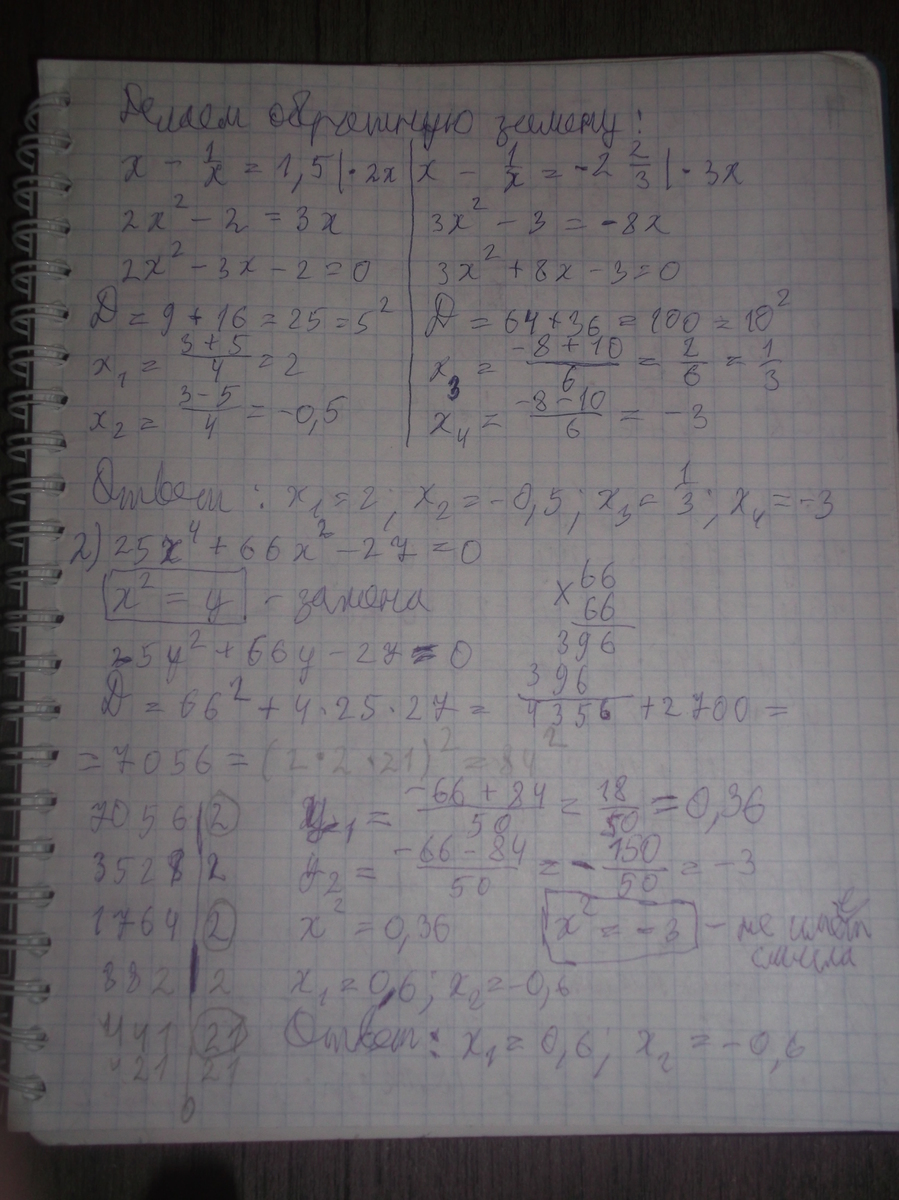 Делаем обратную замену:
x - 1/x = 1,5 |·2x
2x² - 2 = 3x
2x² - 3x - 2 = 0
D = 9 + 16 = 25 = 5²
x₁ = (3+5)/4 = 2
x₂ = (3-5)/4 = -0,5
x - 1/x = -2 2/3 |·3x
3x² - 3 = -8x
3x² + 8x - 3 = 0
D = 64 + 36 = 100 = 10²
x₃ = (-8+10)/6 = 2/6 = 1/3
x₄ = (-8-10)/6 = -3
Ответ: x₁ = 2; x₂ = -0,5; x₃ = 1/3; x₄ = -3
2) 25x⁴ + 66x² - 27 = 0
x² = y - замена
25y² + 66y - 27 = 0
×66
66
396
396
D = 66² + 4·25·27 = 4356 + 2700 =
= 7056 = (2·2·21)² = 84²
7056 | 2
3528 | 2
1764 | 2
882 | 2
441 | 21
21 21
0
y₁ = (-66+84)/50 = 18/50 = 0,36
y₂ = (-66-84)/50 = -150/50 = -3
x² = 0,36
x² = -3 - не имеет
смысла
x₁ = 0,6; x₂ = -0,6
Ответ: x₁ = 0,6; x₂ = -0,6